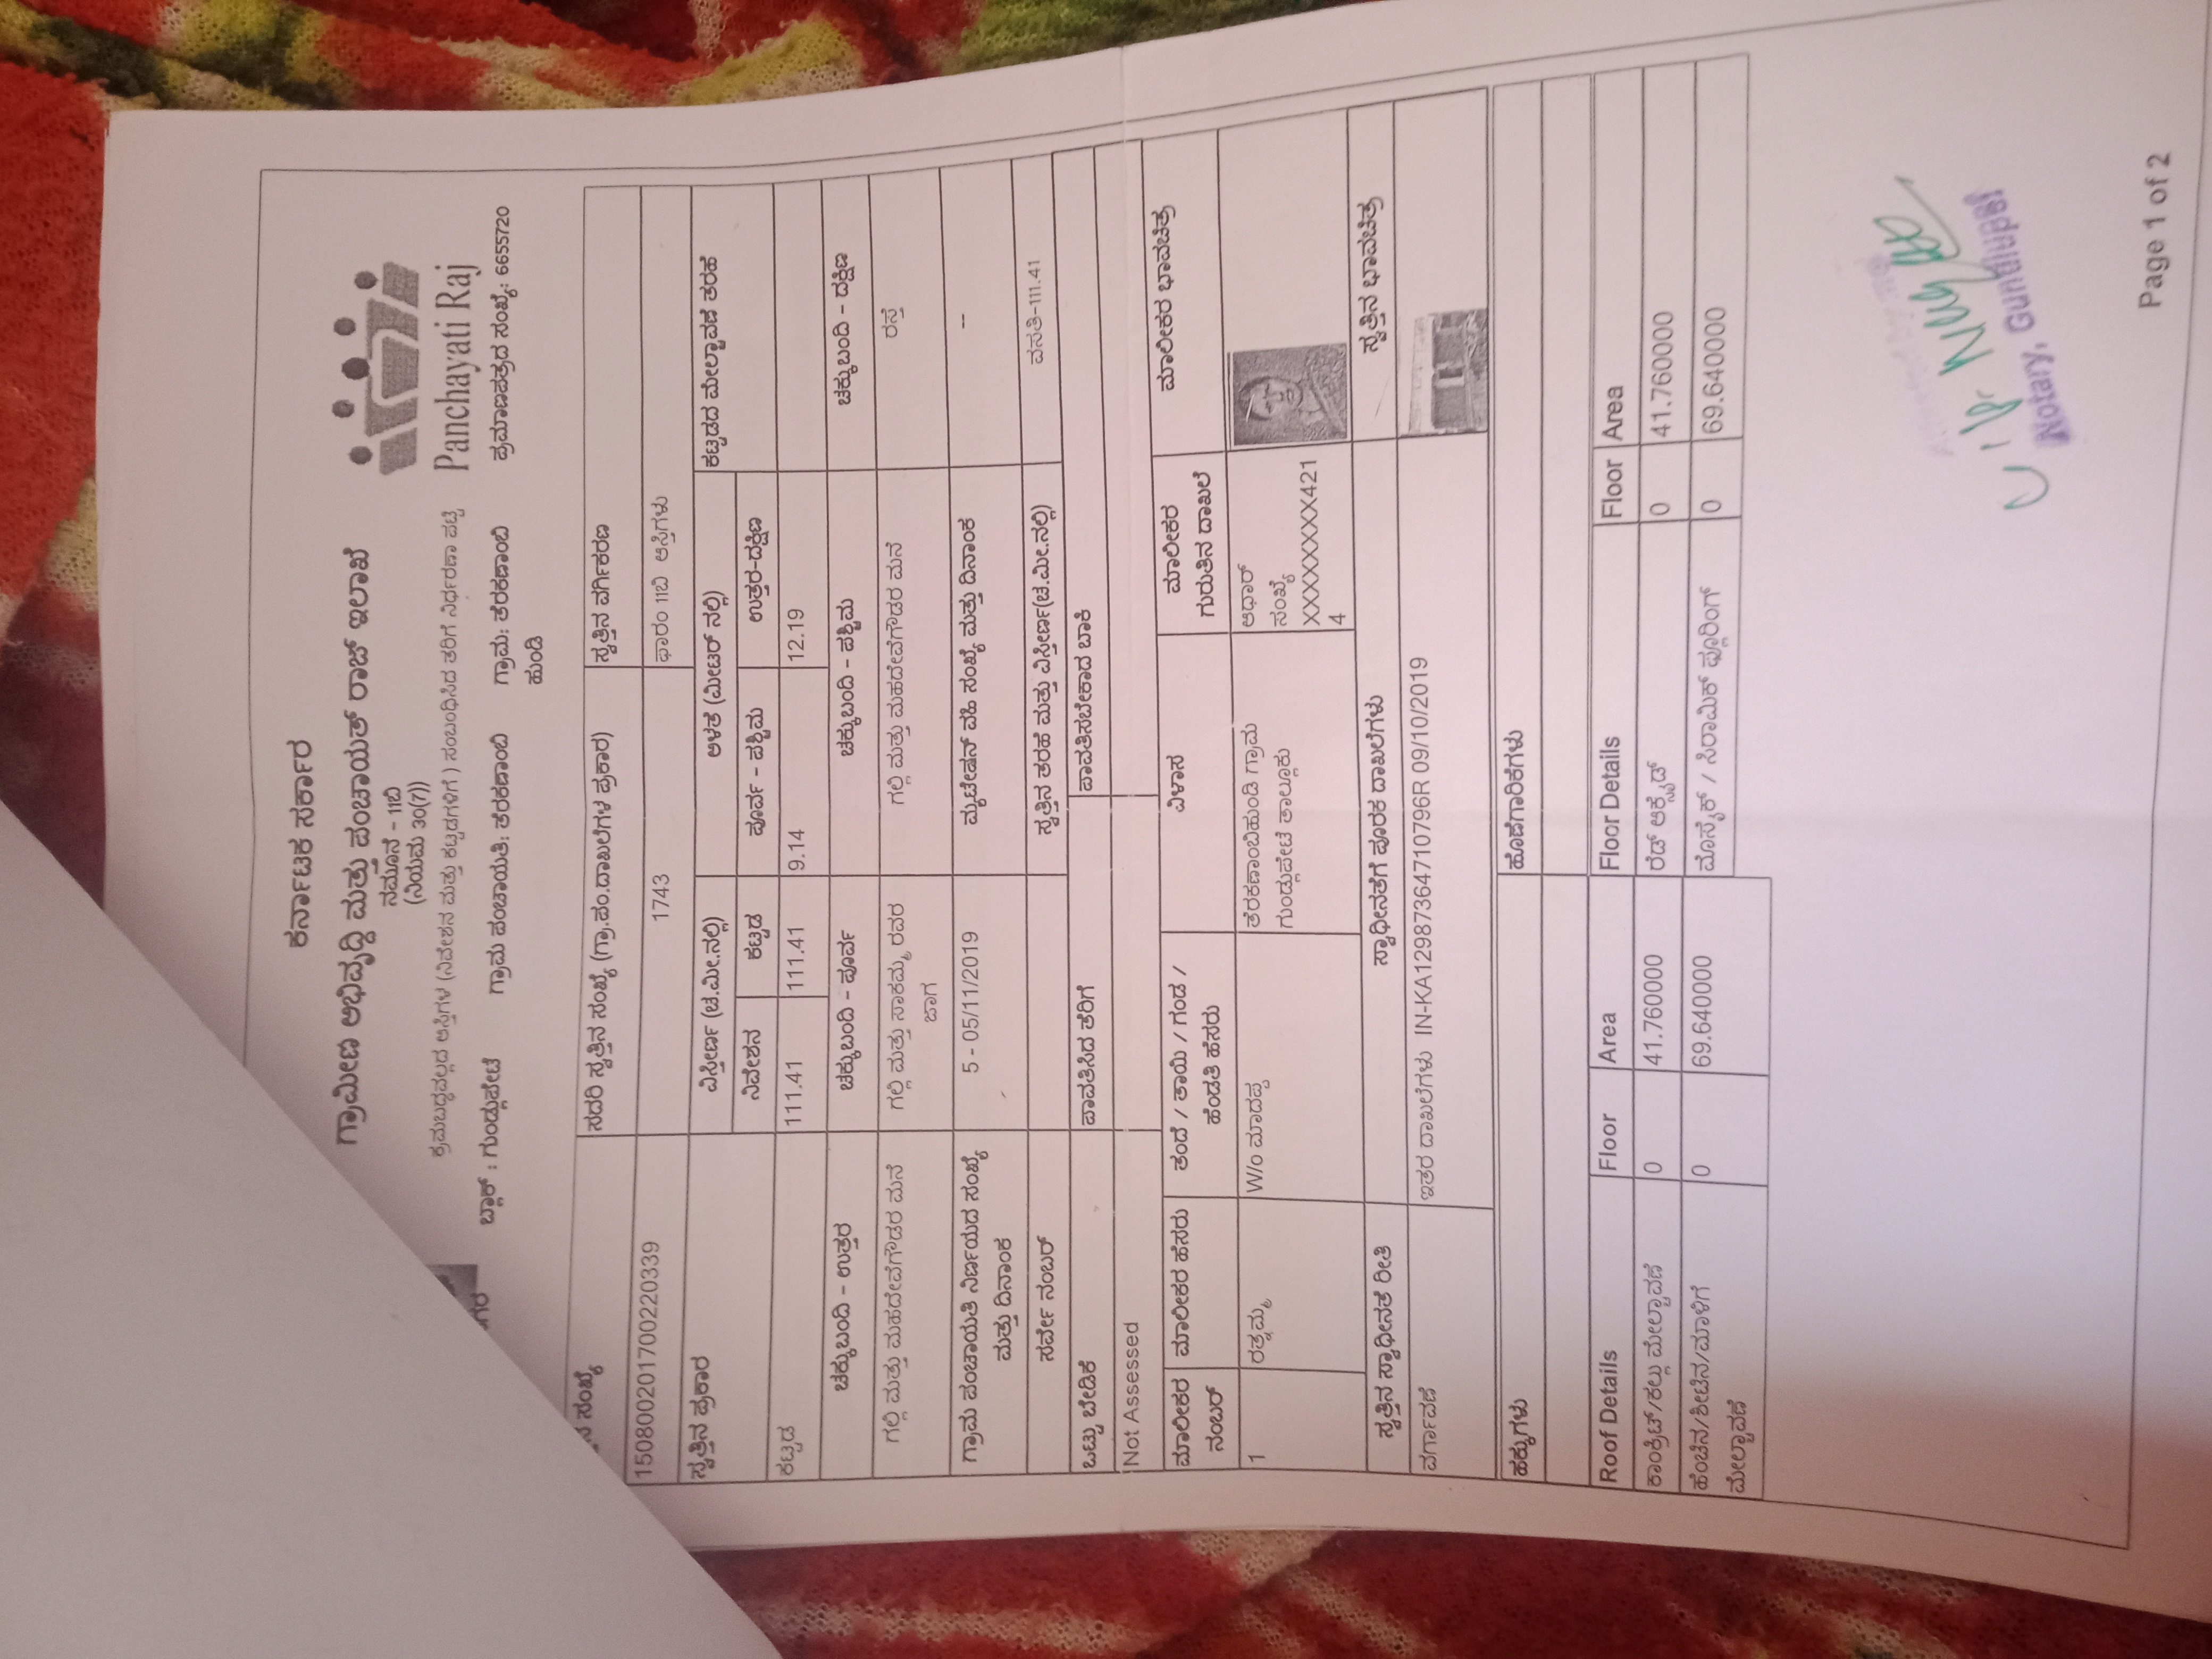 ಕರ್ನಾಟಕ ಸರ್ಕಾರ
ಗ್ರಾಮೀಣ ಅಭಿವೃದ್ಧಿ ಮತ್ತು ಪಂಚಾಯತ್ ರಾಜ್ ಇಲಾಖೆ
ನಮೂನೆ - 11ಬಿ
(ನಿಯಮ 30(7))
ಕ್ರಮಬದ್ಧವಲ್ಲದ ಆಸ್ತಿಗಳ (ನಿವೇಶನ ಮತ್ತು ಕಟ್ಟಡಗಳಿಗೆ ) ಸಂಬಂಧಿಸಿದ ತೆರಿಗೆ ನಿರ್ಧರಣಾ ಪಟ್ಟಿ
Panchayati Raj
ಬ್ಲಾಕ್ : ಗುಂಡ್ಲುಪೇಟೆ ಗ್ರಾಮ ಪಂಚಾಯತಿ: ತೆರಕಣಾಂಬಿ ಗ್ರಾಮ: ತೆರಕಣಾಂಬಿ ಪ್ರಮಾಣಪತ್ರದ ಸಂಖ್ಯೆ: 6655720
ಹುಂಡಿ
ಸಂಖ್ಯೆ ಸದರಿ ಸ್ವತ್ತಿನ ಸಂಖ್ಯೆ (ಗ್ರಾ.ಪಂ.ದಾಖಲೆಗಳ ಪ್ರಕಾರ) ಸ್ವತ್ತಿನ ವರ್ಗೀಕರಣ
150800201700220339 1743 ಫಾರಂ 11ಬಿ ಆಸ್ತಿಗಳು
ಸ್ವತ್ತಿನ ಪ್ರಕಾರ ವಿಸ್ತೀರ್ಣ (ಚ.ಮೀ.ನಲ್ಲಿ) ಅಳತೆ (ಮೀಟರ್ ನಲ್ಲಿ) ಕಟ್ಟಡದ ಮೇಲ್ಛಾವಣಿ ತರಹೆ
ನಿವೇಶನ ಕಟ್ಟಡ ಪೂರ್ವ - ಪಶ್ಚಿಮ ಉತ್ತರ-ದಕ್ಷಿಣ
ಕಟ್ಟಡ 111.41 111.41 9.14 12.19
ಚಕ್ಕುಬಂದಿ - ಉತ್ತರ ಚಕ್ಕುಬಂದಿ - ಪೂರ್ವ ಚಕ್ಕುಬಂದಿ - ಪಶ್ಚಿಮ ಚಕ್ಕುಬಂದಿ - ದಕ್ಷಿಣ
ಗಲ್ಲಿ ಮತ್ತು ಮಹದೇವೇಗೌಡರ ಮನೆ ಗಲ್ಲಿ ಮತ್ತು ನಾಕಮ್ಮ ರವರ ಗಲ್ಲಿ ಮತ್ತು ಮಹದೇವೇಗೌಡರ ಮನೆ ರಸ್ತೆ
ಜಾಗ
ಗ್ರಾಮ ಪಂಚಾಯತಿ ನಿರ್ಣಯದ ಸಂಖ್ಯೆ 5 - 05/11/2019 ಮ್ಯುಟೇಷನ್ ವಹಿ ಸಂಖ್ಯೆ ಮತ್ತು ದಿನಾಂಕ --
ಮತ್ತು ದಿನಾಂಕ
ಸರ್ವೇ ನಂಬರ್ ಸ್ವತ್ತಿನ ತರಹೆ ಮತ್ತು ವಿಸ್ತೀರ್ಣ(ಚ.ಮೀ.ನಲ್ಲಿ) ವಸತಿ-111.41
ಒಟ್ಟು ಬೇಡಿಕೆ ಪಾವತಿಸಿದ ತೆರಿಗೆ ಪಾವತಿಸಬೇಕಾದ ಬಾಕಿ
Not Assessed
ಮಾಲೀಕರ ಮಾಲೀಕರ ಹೆಸರು ತಂದೆ / ತಾಯಿ / ಗಂಡ / ವಿಳಾಸ ಮಾಲೀಕರ ಮಾಲೀಕರ ಭಾವಚಿತ್ರ
ನಂಬರ್ ಹೆಂಡತಿ ಹೆಸರು ಗುರುತಿನ ದಾಖಲೆ
1 ರತ್ನಮ್ಮ W/o ಮಾದಪ್ಪ ತೆರಕಣಾಂಬಿಹುಂಡಿ ಗ್ರಾಮ ಆಧಾರ್
ಗುಂಡ್ಲುಪೇಟೆ ತಾಲ್ಲೂಕು ಸಂಖ್ಯೆ
XXXXXXXXX421
4
ಸ್ವತ್ತಿನ ಸ್ವಾಧೀನತೆ ರೀತಿ ಸ್ವಾಧೀನತೆಗೆ ಪೂರಕ ದಾಖಲೆಗಳು ಸ್ವತ್ತಿನ ಭಾವಚಿತ್ರ
ವರ್ಗಾವಣೆ ಇತರೆ ದಾಖಲೆಗಳು IN-KA12987364710796R 09/10/2019
ಹಕ್ಕುಗಳು ಹೊಣೆಗಾರಿಕೆಗಳು
Roof Details Floor Area Floor Details Floor Area
ಕಾಂಕ್ರೀಟ್/ಕಲ್ಲು ಮೇಲ್ಛಾವಣಿ 0 41.760000 ರೆಡ್ ಆಕ್ಸೈಡ್ 0 41.760000
ಹೆಂಚಿನ/ಶೀಟಿನ/ಮಾಳಿಗೆ 0 69.640000 ಮೊಸೈಕ್ / ಸಿರಾಮಿಕ್ ಫ್ಲೋರಿಂಗ್ 0 69.640000
ಮೇಲ್ಛಾವಣಿ
Notary, Gundlupet
Page 1 of 2